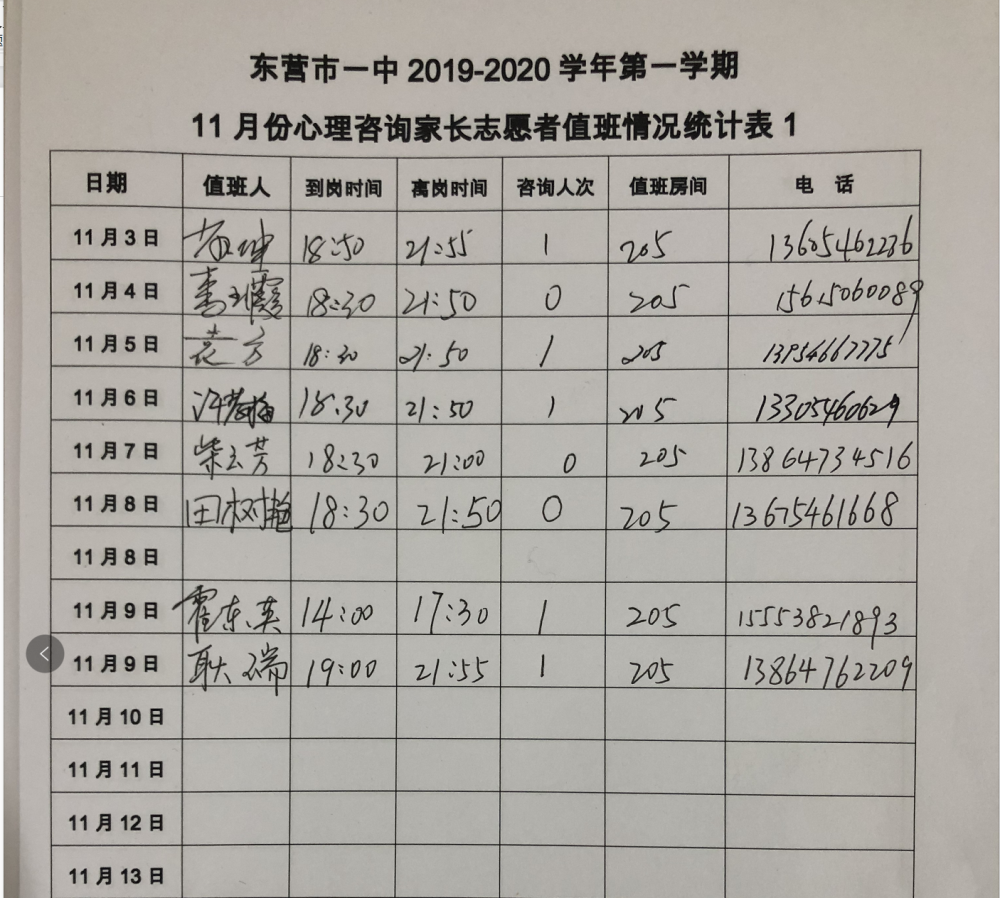 东营市一中 2019-2020 学年第一学期
11 月份心理咨询家长志愿者值班情况统计表 1
日期 值班人 到岗时间 离岗时间 咨询人次 值班房间 电 话
11 月 3 日 18:50 21:55 1 205 13605462236
11 月 4 日 18:30 21:50 0 205 15615060089
11 月 5 日 18:30 21:50 1 205 13954667775
11 月 6 日 18:30 21:50 1 205 13305460629
11 月 7 日 柴云芳 18:30 21:00 0 205 13864734516
11 月 8 日 田树艳 18:30 21:50 0 205 13675461668
11 月 8 日
11 月 9 日 霍东英 14:00 17:30 1 205 15553821893
11 月 9 日 耿瑞 19:00 21:55 1 205 13864762209
11 月 10 日
11 月 11 日
11 月 12 日
11 月 13 日